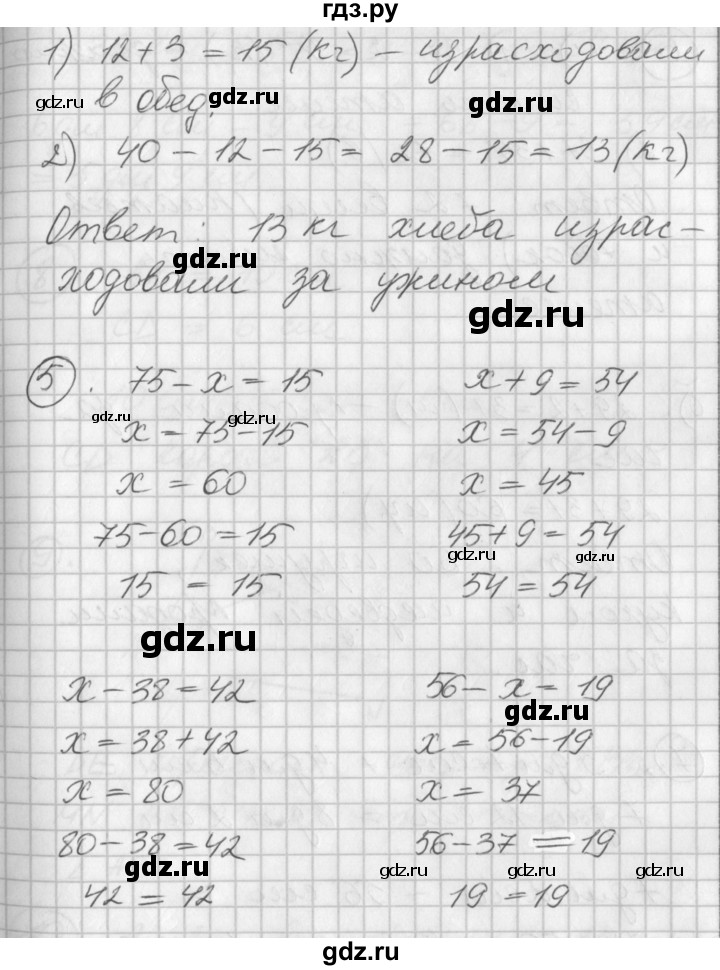 гдз.ру
1) 12+3 = 15 (кг) – израсходовали
gdz.ru в обед. gdz.ru gdz.ru
2) 40 – 12 – 15 = 28 – 15 = 13 (кг)
Ответ: 13 кг хлеба израс-
gdz.ru
ходовали за ужином
gdz.ru
5. 75 – x = 15
x = 75 – 15
gdz.ru gdz.ru
x = 60
75 – 60 = 15
15 = 15
x + 9 = 54
x = 54 – 9
x = 45
45 + 9 = 54
gdz.ru gdz.ru
54 = 54
gdz.ru
x – 38 = 42
x = 38 + 42
x = 80
80 – 38 = 42
gdz.ru
42 = 42
56 – x = 19
gdz.ru
x = 56 – 19
x = 37
56 – 37 = 19
gdz.ru gdz.ru gdz.ru
19 = 19
gdz.ru